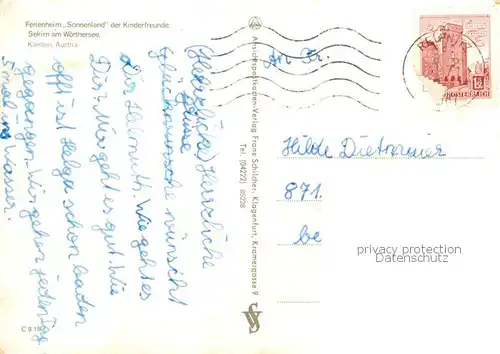 Ferienheim „Sonnenland" der Kinderfreunde,
Sekirn am Wörthersee,
Kärnten, Austria
Herzliche
Grüsse
Glückwünsche wünscht
Dir Helmuth. Wie geht es
Dir? Mir geht es gut. Wie
oft ist Helga schon baden
gegangen. Wir gehen jeden Tag
5 mal ins Wasser.
C 9 18
Ansichtspostkarten-Verlag Franz Schilcher, Klagenfurt, Kramergasse 9
Tel. (04222) 85228
An Fr.
Hilde
871.
be
ÖSTERREICH
privacy protection
Datenschutz